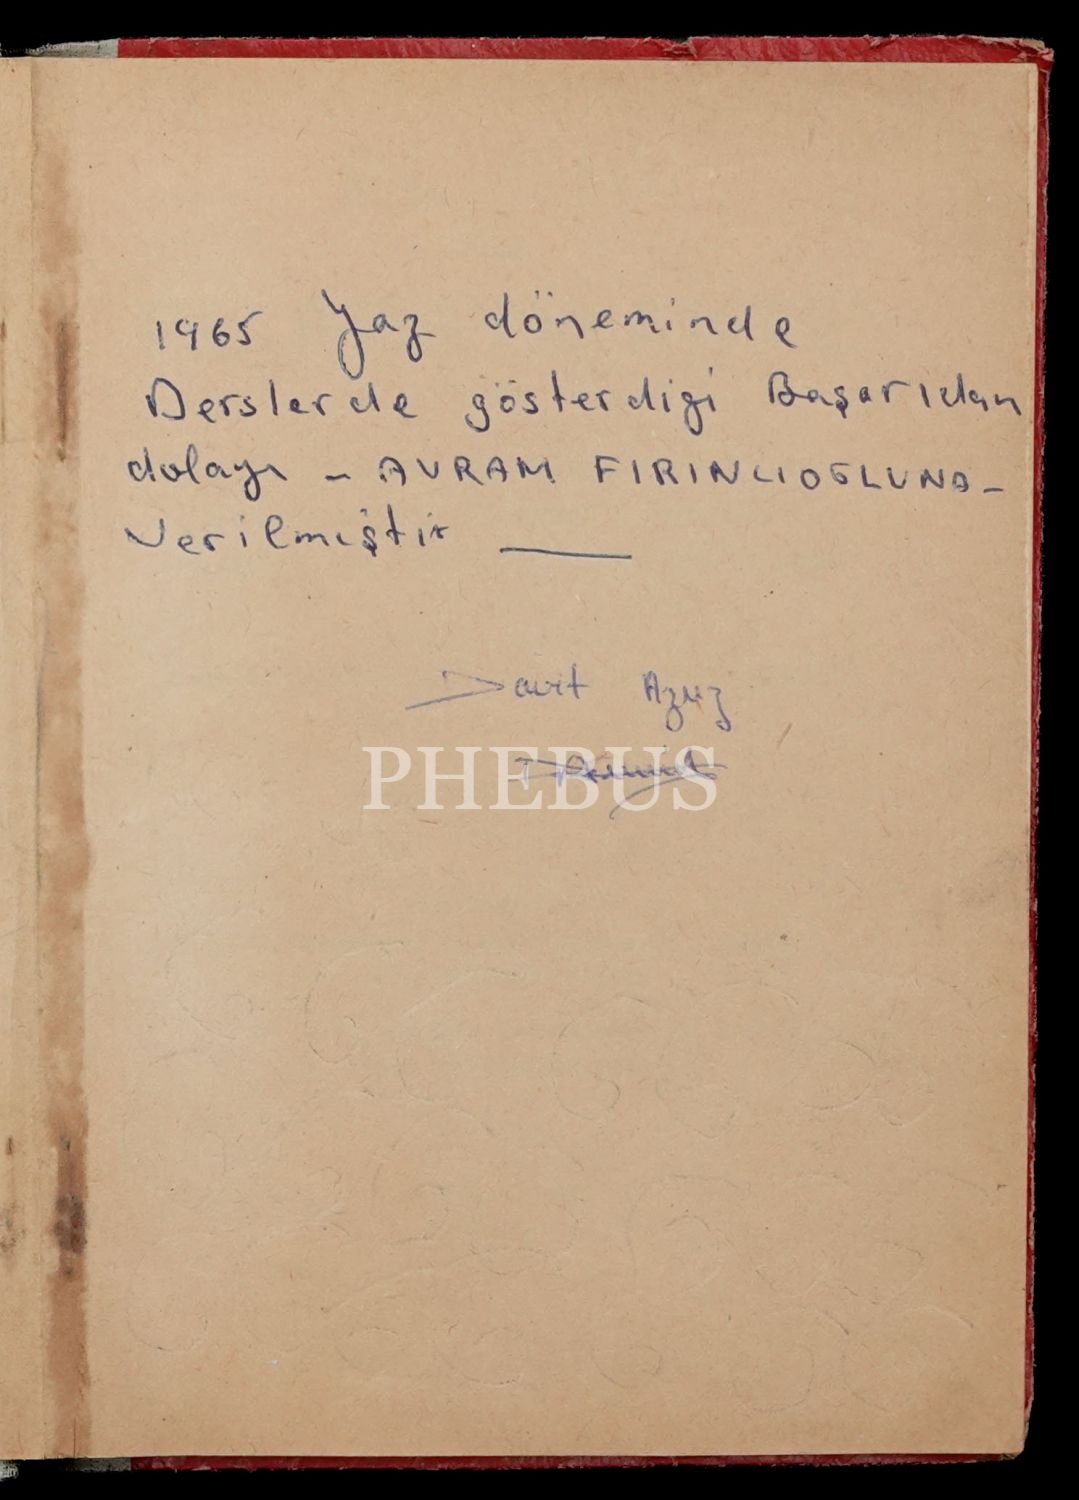 1965 Yaz döneminde
Derslerde gösterdigi Başarıdan
dolayı - AVRAM FIRINCIOGLUNA-
Verilmiştir
Davit Azuz
PHEBUS